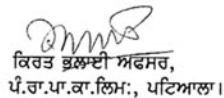 ਕਿਰਤ ਭਲਾਈ ਅਫਸਰ,
ਪੰ.ਰਾ.ਪਾ.ਕਾ.ਲਿਮ:, ਪਟਿਆਲਾ।